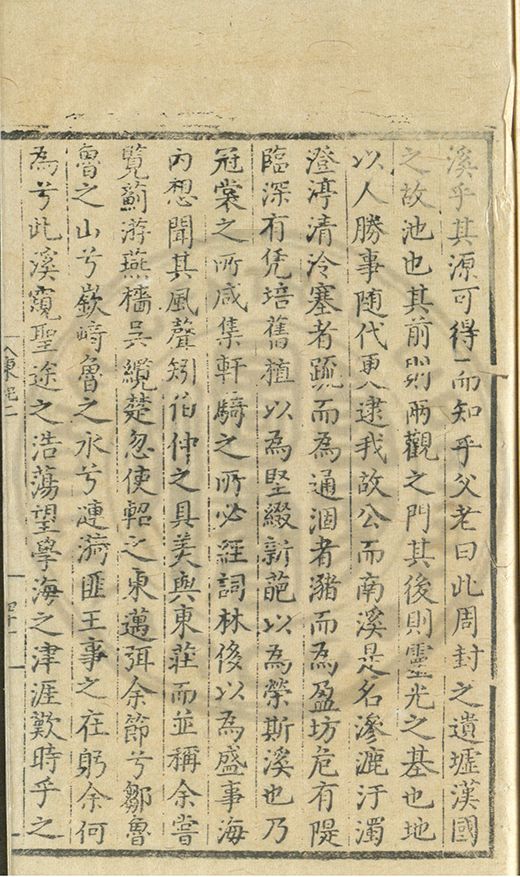 溪乎其源可得而知乎父老曰此周封之遺墟漢國
之故池也其前則兩觀之門其後則靈光之基也地
以人勝事随代更逮我故公而南溪是名滲漉汙濁
澄渟清泠塞者䟽而為通涸者瀦而為盈坊危有隄
臨深有凭培舊植以為堅綴新葩以為榮斯溪也乃
冠裳之所咸集軒騎之所必經詞林侈以為盛事海
内想聞其風聲矧伯仲之具美與東莊而並稱余嘗
覽薊游燕檣吳纜楚忽使軺之東邁弭余節兮鄒魯
魯之山兮嶔崎魯之水兮漣漪匪王事之在躬余何
為兮此溪窺聖途之浩蕩望學海之津涯歎時乎之